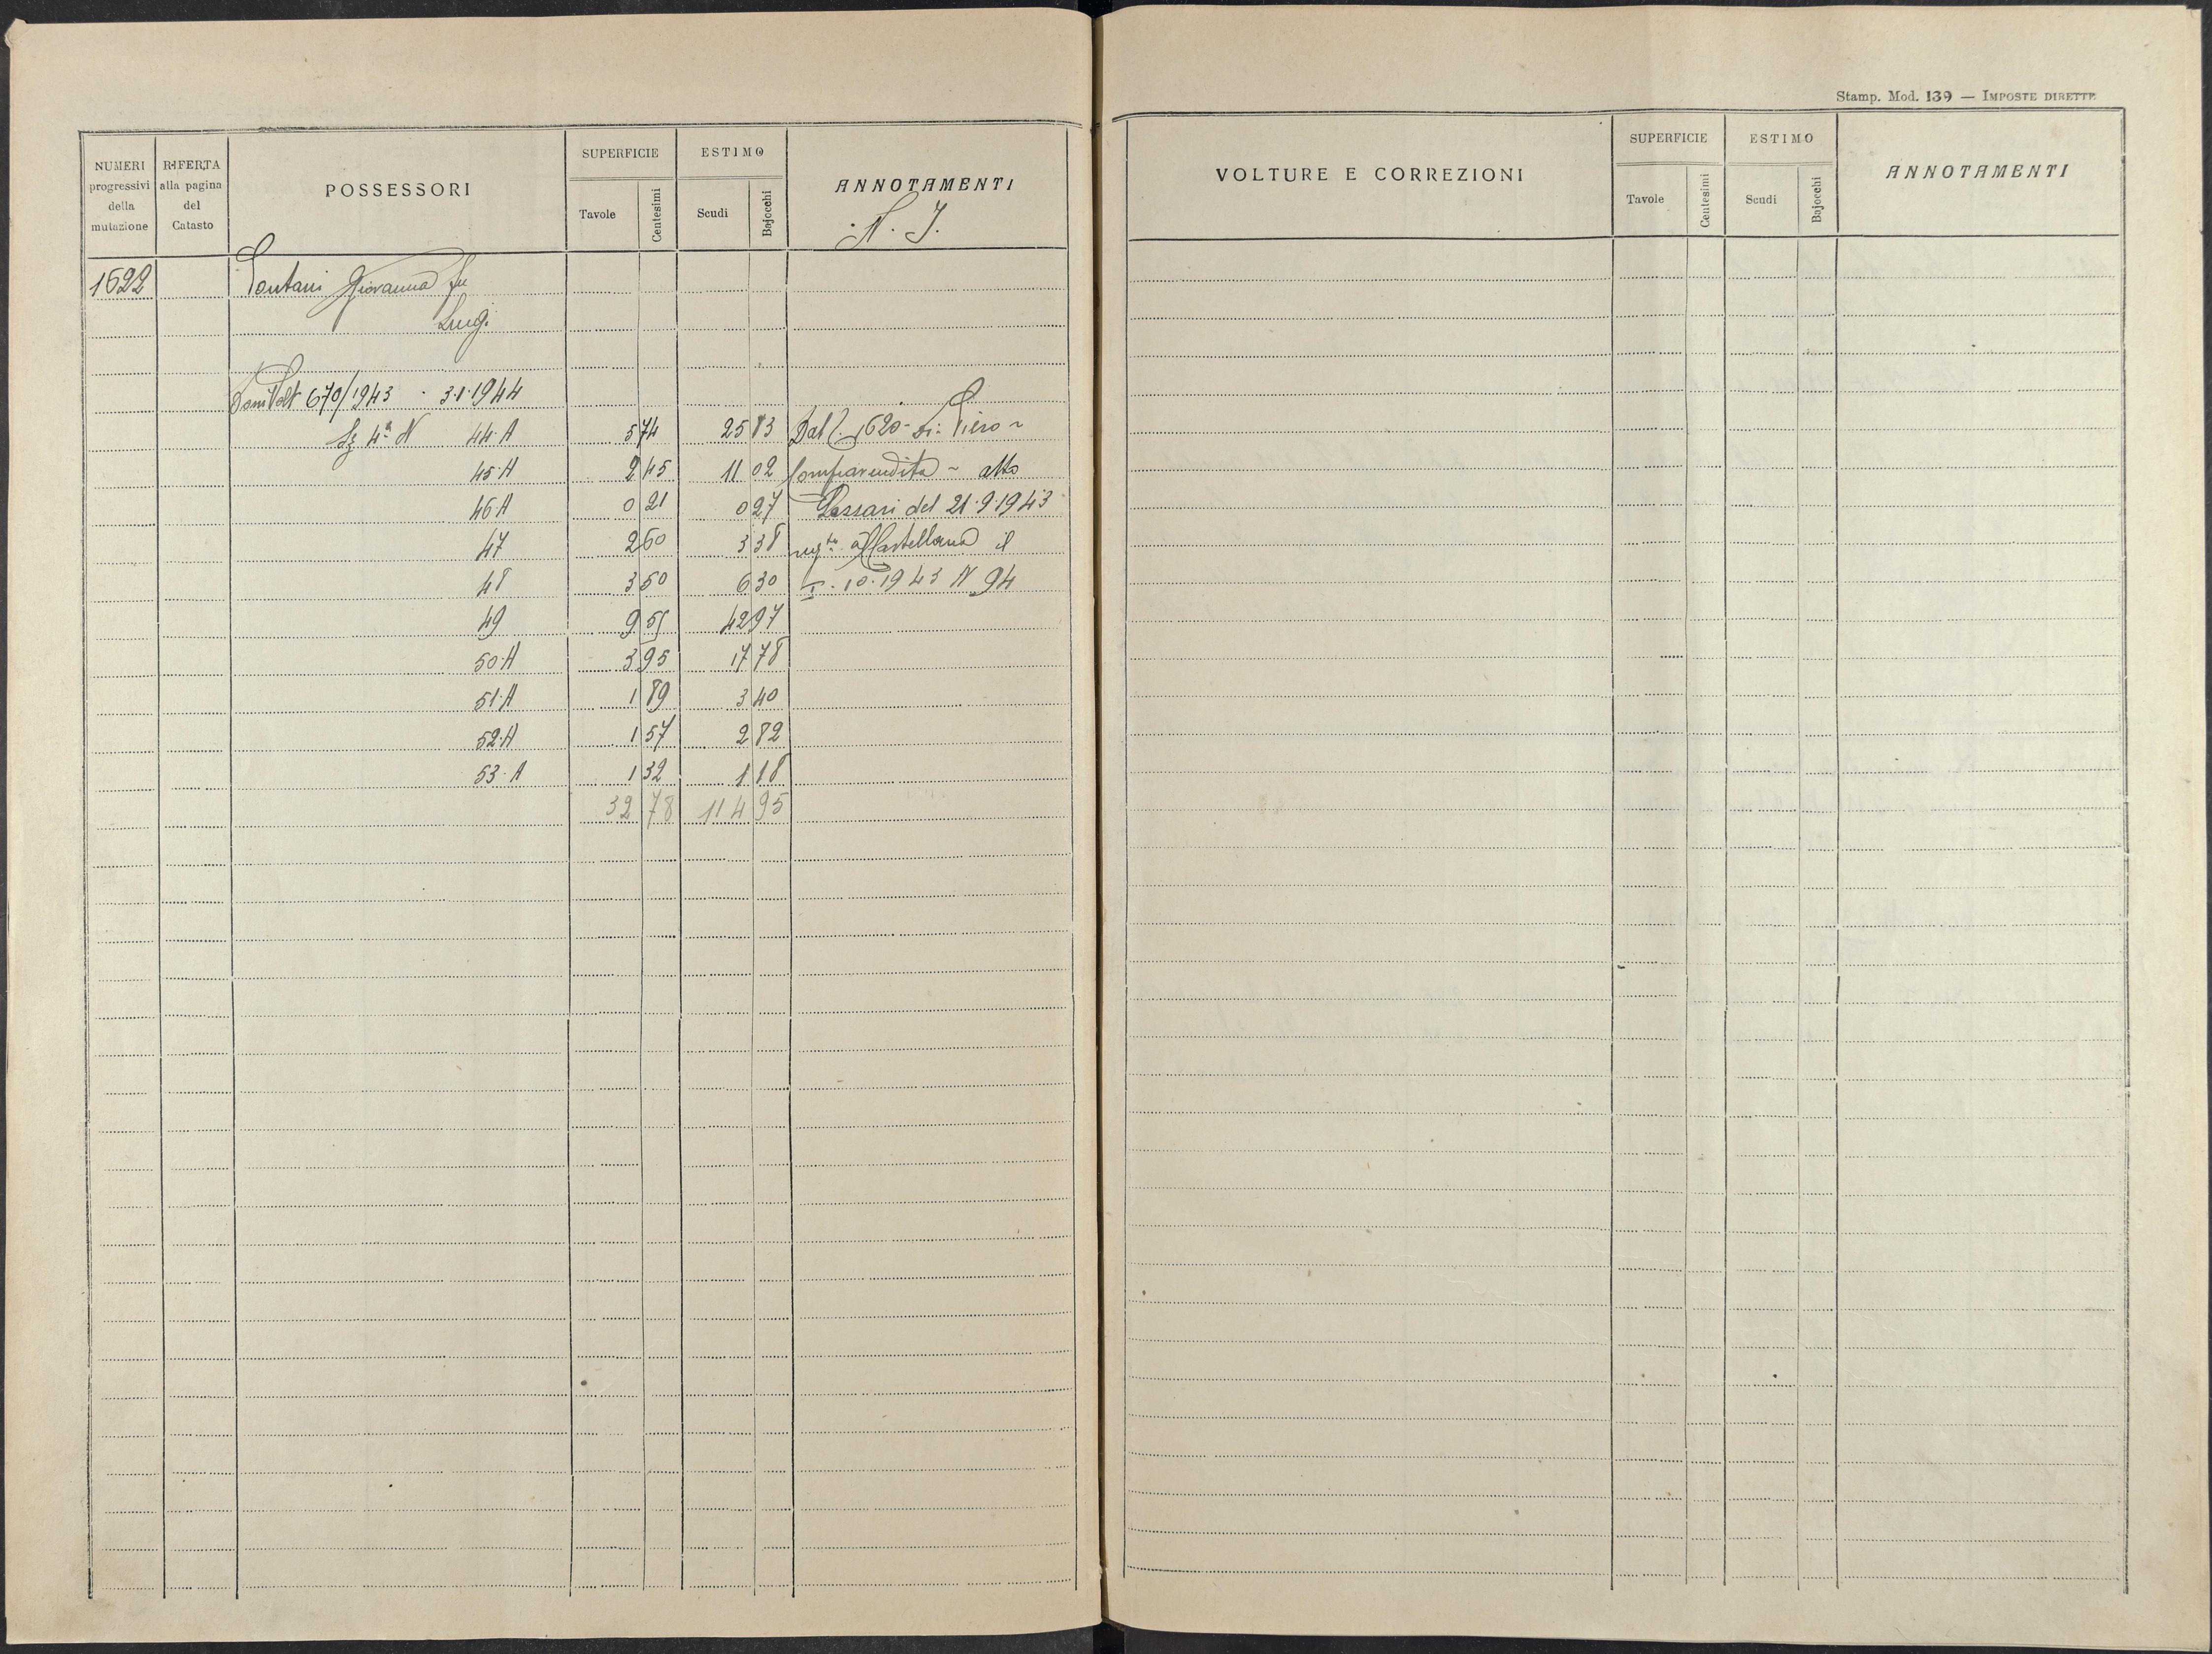 Stamp. Mod. 139 — IMPOSTE DIRETTE
NUMERI progressivi della mutazione
RIFERTA alla pagina del Catasto
POSSESSORI
SUPERFICIE
Tavole
Centesimi
ESTIMO
Scudi
Bajocchi
ANNOTAMENTI
N. I.
1622 Giovanna fu
Luigi
670/1943 · 3·1·1944
4ª N 44·A 5 74 25 83 Dal 1620
45·A 2 45 11 02 Compravendita ~ atto
46·A 0 21 0 27 del 21·9·1943
47 2 60 3 38 il
48 3 50 6 30 10·1943 N 94
49 9 55 42 97
50·A 3 95 17 78
51·A 1 89 3 40
52·A 1 57 2 82
53·A 1 32 1 18
32 78 114 95
VOLTURE E CORREZIONI
SUPERFICIE
Tavole
Centesimi
ESTIMO
Scudi
Bajocchi
ANNOTAMENTI